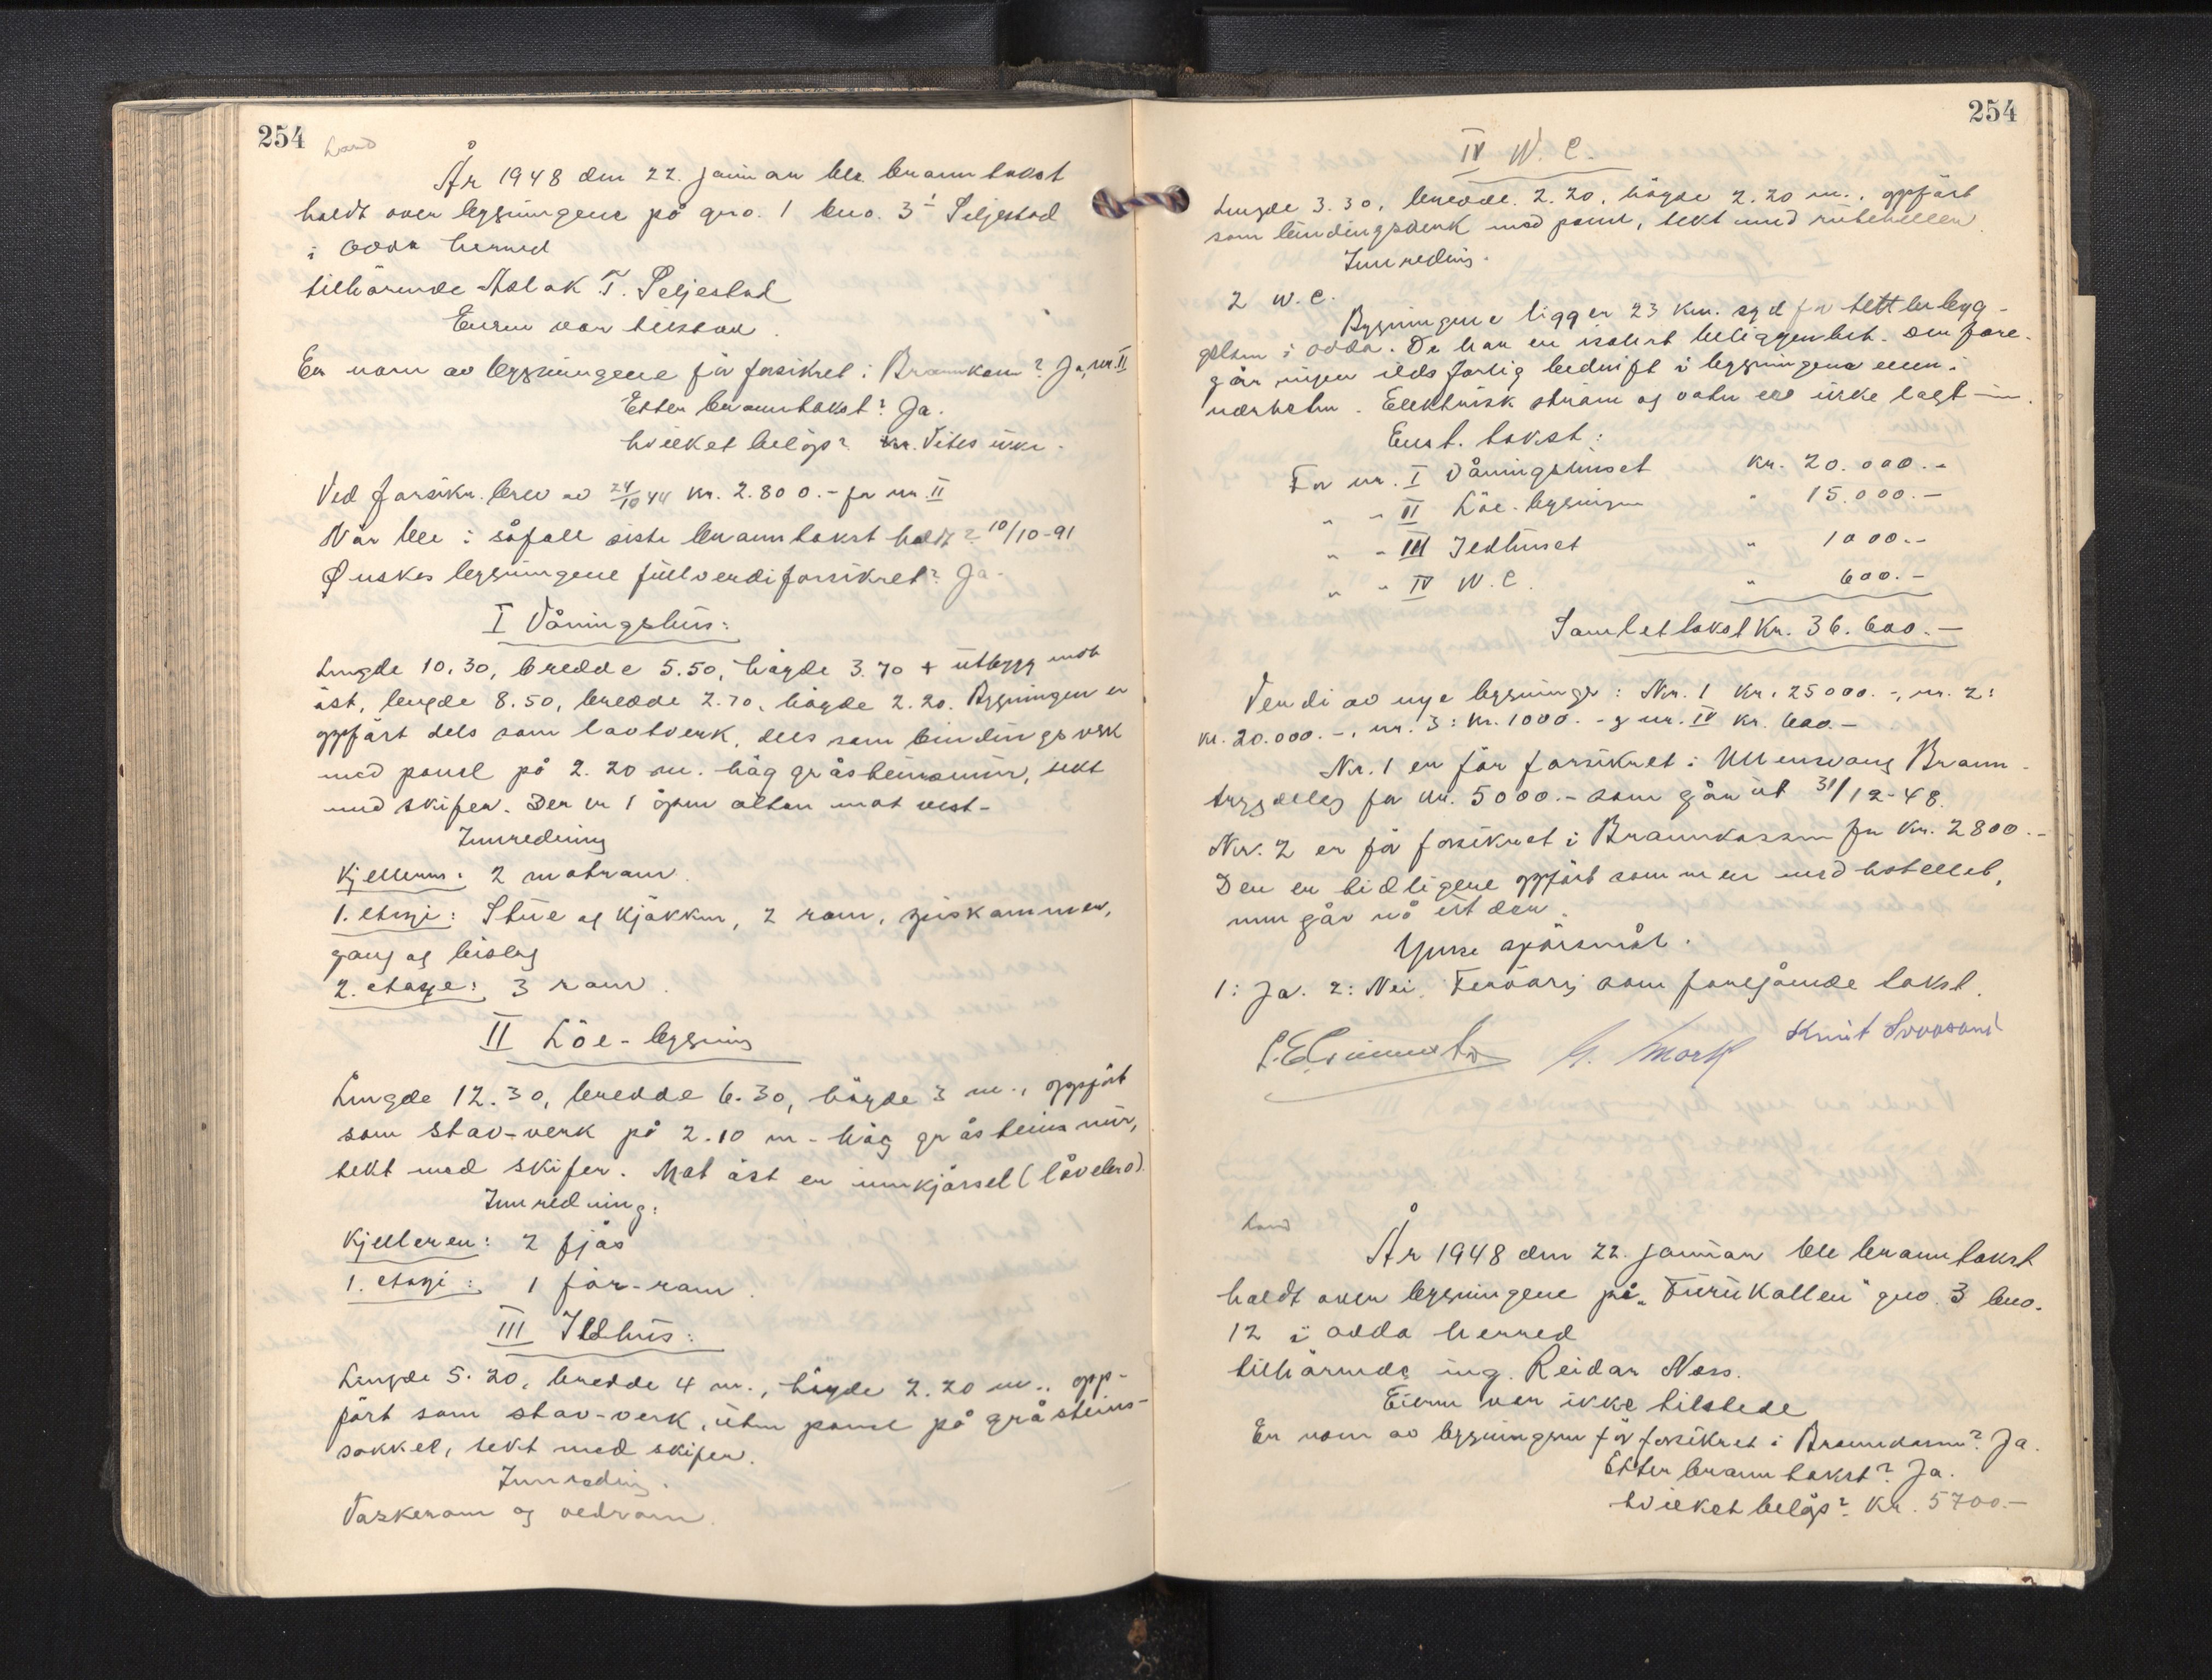 254
Land
År 1948 den 22. januar ble branntakst
holdt over bygningene på gno. 1 bno. 3¹ Seljestad
i Odda herred
tilhörende Aslak T. Seljestad
Eieren var tilstede.
Er noen av bygningene för forsikret i Brannkassen? Ja, nr. II
Etter branntakst? Ja.
hvilket belöp? kr. Vites ikke.
Ved forsikr. brev av 24/10 44 kr. 2.800.- for nr. II
Når ble i såfall siste branntakst holdt? 10/10-91
Ønskes bygningene fullverdiforsikret? Ja.
I Våningshus:
Lengde 10.30, bredde 5.50, höyde 3.70 + utbygg mot
öst, lengde 8.50, bredde 2.70, höyde 2.20. Bygningen er
oppfört dels som laftverk, dels som bindingsverk
med panel på 2.20 m. hög gråsteinsmur, tekt
med skifer. Der er 1 åpen altan mot vest.
Innredning
Kjelleren: 2 matrom.
1. etasje: Stue og kjökken, 2 rom, spiskammer,
gang og bislag
2. etasje: 3 rom.
II Löe-bygning
Lengde 12.30, bredde 6.30, höyde 3 m., oppfört
som stav-verk på 2.10 m. hög gråsteinsmur,
tekt med skifer. Mot öst er innkjörsel (låvebro).
Innredning:
Kjelleren: 2 fjös
1. etasje: 1 fôr-rom.
III Ildhus:
Lengde 5.20, bredde 4 m., höyde 2.20 m., opp-
fört som stav-verk, uten panel på gråsteins-
sokkel, tekt med skifer.
Innredning.
Vaskerom og vedrom.
254
IV W.C.
Lengde 3.30, bredde 2.20, höyde 2.20 m., oppfört
som bindingsverk med panel, tekt med ruteheller.
Innredning.
2 W.C.
Bygningene ligger 23 km. syd for tettbebyg-
gelsen i Odda. De har en isolert beliggenhet. Der fore-
går ingen ildsfarlig bedrift i bygningene eller i
nærheten. Elektrisk ström og vatn er ikke lagt inn.
Enst. takst:
For nr. I Våningshuset kr. 20.000.-
" " II Löe-bygningen " 15.000.-
" " III Ildhuset " 1000.-
" " IV W.C. " 600.-
Samlet takst kr. 36.600.-
Verdi av nye bygninger: Nr. 1 kr. 25000.-, nr. 2:
kr. 20.000.-, nr. 3: kr. 1000.- og nr. IV kr. 600.-
Nr. 1 er för forsikret i Ullensvang Brann-
trygdelag for kr. 5000.- som går ut 31/12-48.
Nr. 2 er för forsikret i Brannkassen for kr. 2800.-
Den er tidligere oppfört sammen med hotellet,
men går nå ut der.
Ymse spörsmål.
1: Ja. 2: Nei. Forövrig som foregående takst.
G. Mork Knut
Land
År 1948 den 22. januar ble branntakst
holdt over bygningene på "Furukollen" gno. 3 bno.
12 i Odda herred
tilhörende ing. Reidar Næss.
Eieren var ikke tilstede
Er noen av bygningene för forsikret i Brannkassen? Ja.
Etter branntakst? Ja.
hvilket belöp? kr. 5700.-